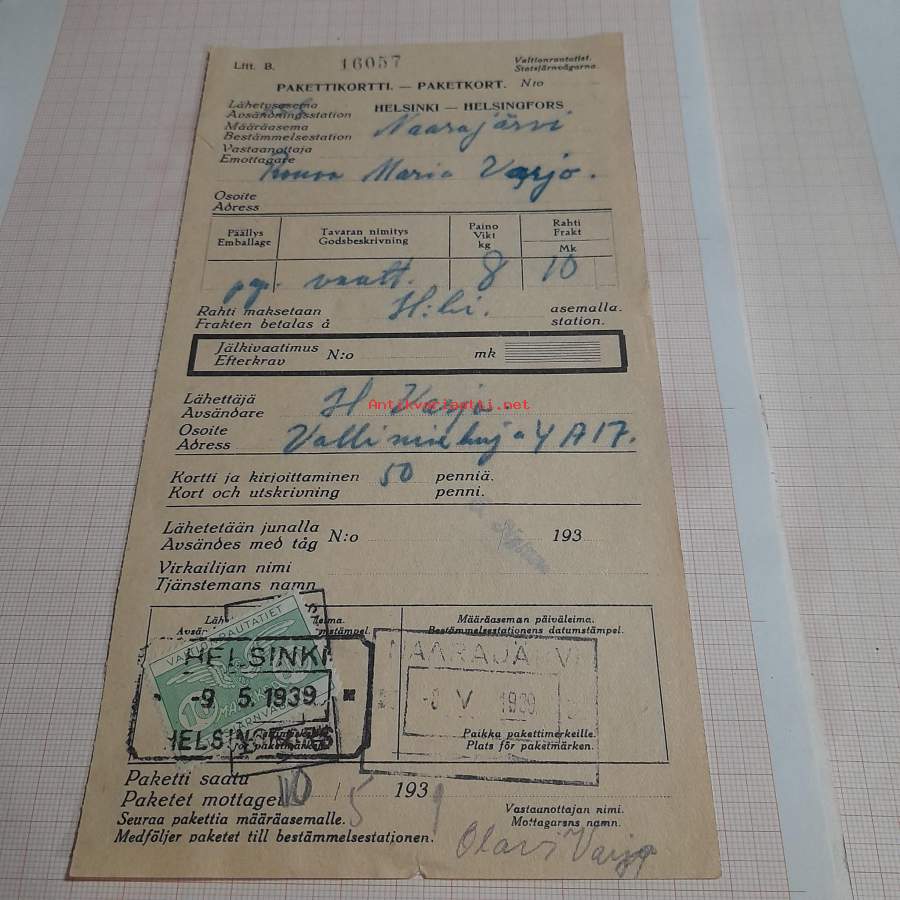 Litt. B. 16057 Valtionrautatiet.
Statsjärnvägarna.
PAKETTIKORTTI. — PAKETKORT. N:o
Lähetysasema HELSINKI — HELSINGFORS
Avsändningsstation
Määräasema Naarajärvi
Bestämmelsestation
Vastaanottaja
Emottagare Rouva Maria Varjo.
Osoite
Adress
Päällys Tavaran nimitys Paino Rahti
Emballage Godsbeskrivning Vikt Frakt
kg Mk
pg. vaatt. 8 10
Rahti maksetaan H:ki. asemalla.
Frakten betalas å station.
Jälkivaatimus N:o mk
Efterkrav
Lähettäjä H Varjo
Avsändare
Antikvariaatti.net
Osoite
Adress Vallimiehuja 4 A 17.
Kortti ja kirjoittaminen 50 penniä.
Kort och utskrivning penni.
Lähetetään junalla N:o 193
Avsändes med tåg
Virkailijan nimi
Tjänstemans namn
Määräaseman päiväleima.
Bestämmelsestationens datumstämpel.
HELSINKI
-9. 5. 1939
HELSINGFORS
NAARAJÄRVI
V 1939
10 MARKKAA
Paikka pakettimerkeille.
Plats för paketmärken.
Paketti saatu
Paketet mottaget 10 / 5 1939
Seuraa pakettia määräasemalle.
Medföljer paketet till bestämmelsestationen.
Vastaanottajan nimi.
Mottagarens namn.
Olavi Varjo